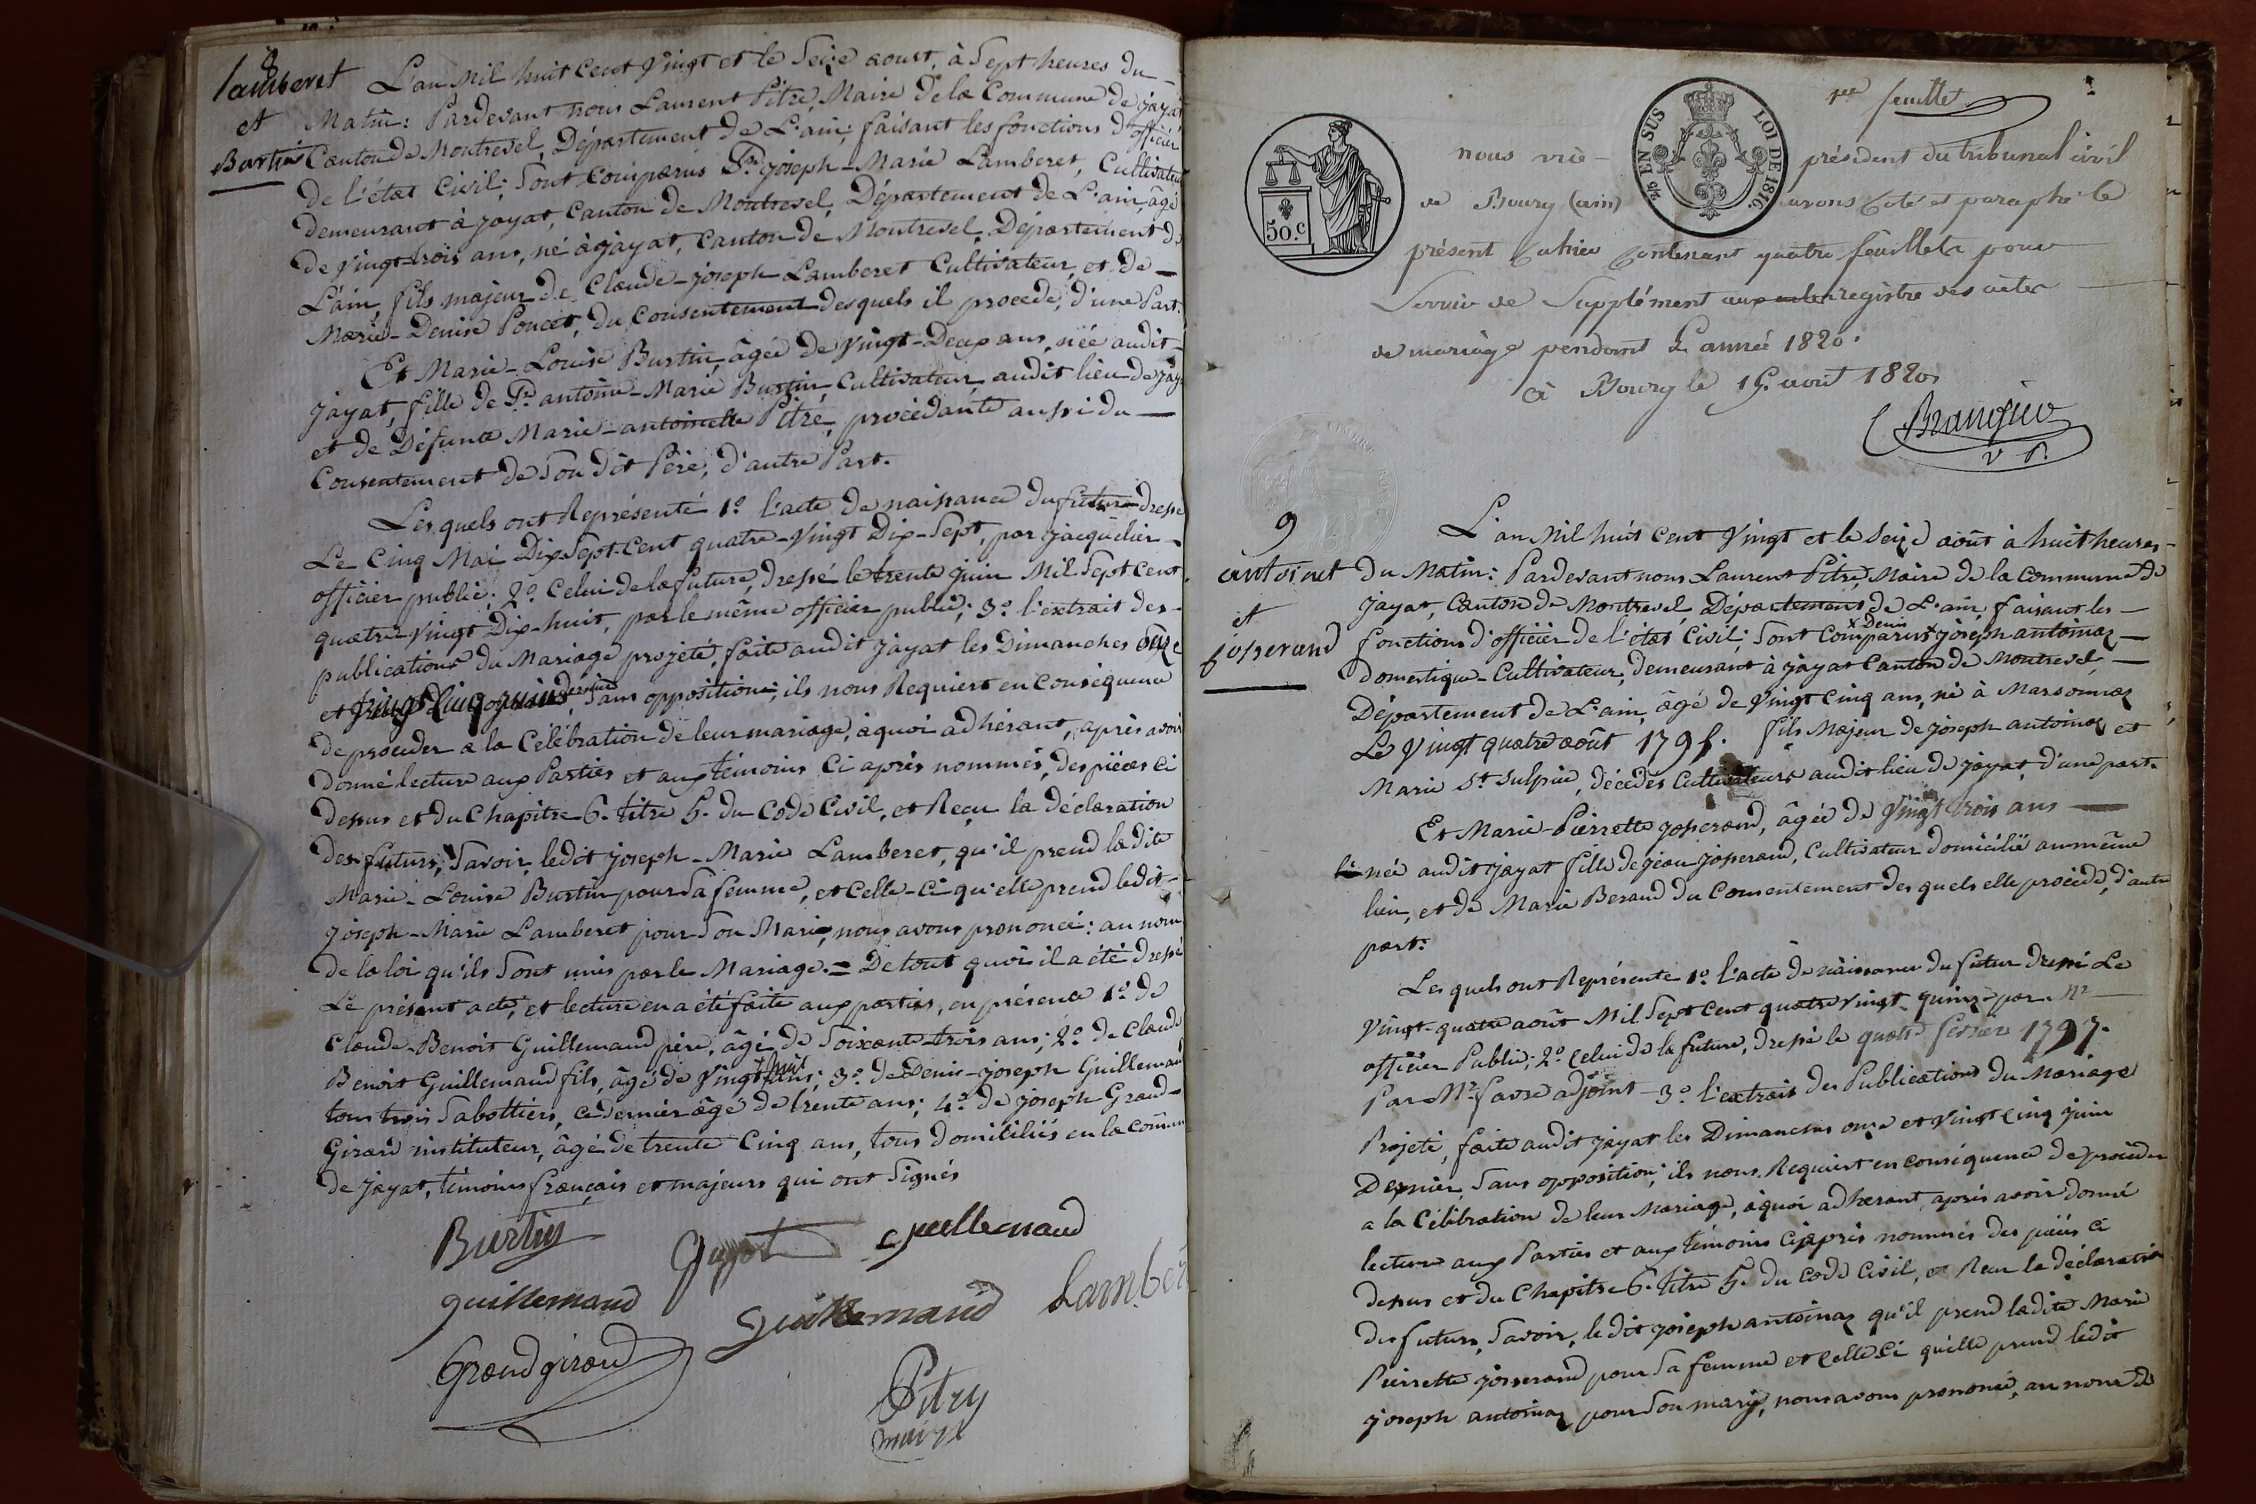 8
Lamberet
et
Burtin
L'an Mil huit Cent Vingt et le Seize aoust, à Sept heures du
Matin: Pardevant nous Laurent Pitre, Maire de la Commune de jayat
Canton de Montrevel, Département de L'ain, faisant les fonctions d'officier
de l'état Civil; Sont Comparus Sr. joseph-Marie Lamberet, Cultivateur
demeurant à jayat, Canton de Montrevel, Département de L'ain, âgé
de Vingt-trois ans, né à jayat, Canton de Montrevel, Département de
L'ain, fils majeur de Claude-joseph Lamberet Cultivateur, et de
Marie-Denise Poncet, du Consentement desquels il procède, d'une Part.
Et Marie-Louise Burtin, âgée de Vingt-Deux ans, née audit
jayat, fille de Sr. antoine-Marie Burtin, Cultivateur, audit lieu de jayat
et de Défunte Marie-antoinette Pitre, procédante aussi du
Consentement de Son dit Père, d'autre Part.
Les quels ont Représenté 1o. l'acte de naissance du futur dressé
Le Cinq Mai Dix Sept-Cent quatre-Vingt Dix-Sept, par jacquelier
officier public; 2o. Celui de la future, dressé le trente juin Mil Sept Cent
quatre-Vingt Dix-huit, par le même officier public; 3o. l'extrait des
publications du Mariage projeté, faite audit jayat les Dimanches onze
et Vingt Cinq juin dernier, Sans opposition; ils nous Requiert en Conséquence
de procéder a la Célébration de leur mariage, à quoi adhérant, après avoir
donné lecture aux Parties et aux témoins Ci après nommés, des pièces Ci
dessus et du Chapitre 6. titre 5. du Code Civil, et Reçu la déclaration
des futurs, Savoir, ledit joseph-Marie Lamberet, qu'il prend ladite
Marie-Louise Burtin pour Sa femme, et Celle-Ci qu'elle prend ledit
joseph-Marie Lamberet pour Son Mari, nous avons prononcé: au nom
de la loi qu'ils Sont unis par le Mariage. = De tout quoi il a été dressé
Le présent acte, et lecture en a été faite aux parties, en présence 1o. de
Claude-Benoit Guillemaud père, âgé de Soixante-trois ans; 2o. de Claude
Benoit Guillemaud fils, âgé de Vingt huit ans; 3o. de Denis-joseph Guillemaud
tous trois Sabottiers, ce dernier âgé de trente ans; 4o. de joseph Grand-
Girard instituteur, âgé de trente Cinq ans, tous domiciliés en la comune
de jayat, témoins français et majeurs qui ont Signés
Burtin
Guyot
guillemaud
guillemaud
guillemaud
Lamberet
Grandgirard
Pitre
maire
1er feuillet
50.c
EN SUS
LOI DE 1816.
nous vice-président du tribunal civil
de Bourg (ain) avons Coté et paraphé le
présent Cahier Contenant quatre feuillets pour
Servir de Supplément aux registre des actes
de mariage pendant L'année 1820.
à Bourg le 15 aout 1820.
v. p.
9
antoinat
et
josserand
L'an Mil huit Cent Vingt et le Seize aoüt à huit heures
du Matin: Pardevant nous Laurent Pitre, Maire de la Commune de
jayat, Canton de Montrevel, Département de L'ain, faisant les
fonctions d'officier de l'état Civil; Sont Comparus Denis joseph antoinaz
Domestique-Cultivateur, demeurant à jayat Canton de Montrevel,
Département de L'ain, âgé de Vingt Cinq ans, né à Marsonnaz
Le Vingt quatre aoüt 1795. fils Majeur de joseph antoinaz et
Marie St. Sulpice, décédés Cultivateurs audit lieu de jayat, d'une part.
Et Marie-Pierrette josserand, âgée de Vingt trois ans
née audit jayat fille de jean josserand, Cultivateur domicilié au même
lieu, et de Marie Beraud du Consentement des quels elle procède, d'autre
part.
Les quels ont Représenté 1o. l'acte de naissance du futur dressé Le
Vingt-quatre aoüt Mil Sept Cent quatre Vingt quinze par Mr
officier Public; 2o. Celui de la future, dressé le quatre fevrier 1797.
Par Mr. favre adjoint 3o. l'extrait des Publications du Mariage
Projeté, faite audit jayat les Dimanches onze et Vingt Cinq juin
Dernier, Sans opposition; ils nous Requiert en conséquence de procéder
a la Célébration de leur Mariage, à quoi adhérant, après avoir donné
lecture aux Parties et aux témoins Ci après nommés des pièces Ci
dessus et du Chapitre 6. titre 5. du Code Civil, et Reçu la déclaration
des futurs, Savoir, le dit joseph antoinaz qu'il prend ladite Marie
Pierrette josserand pour Sa femme et Celle Ci qu'elle prend ledit
joseph antoinaz pour Son mari, nous avons prononcé, au nom de